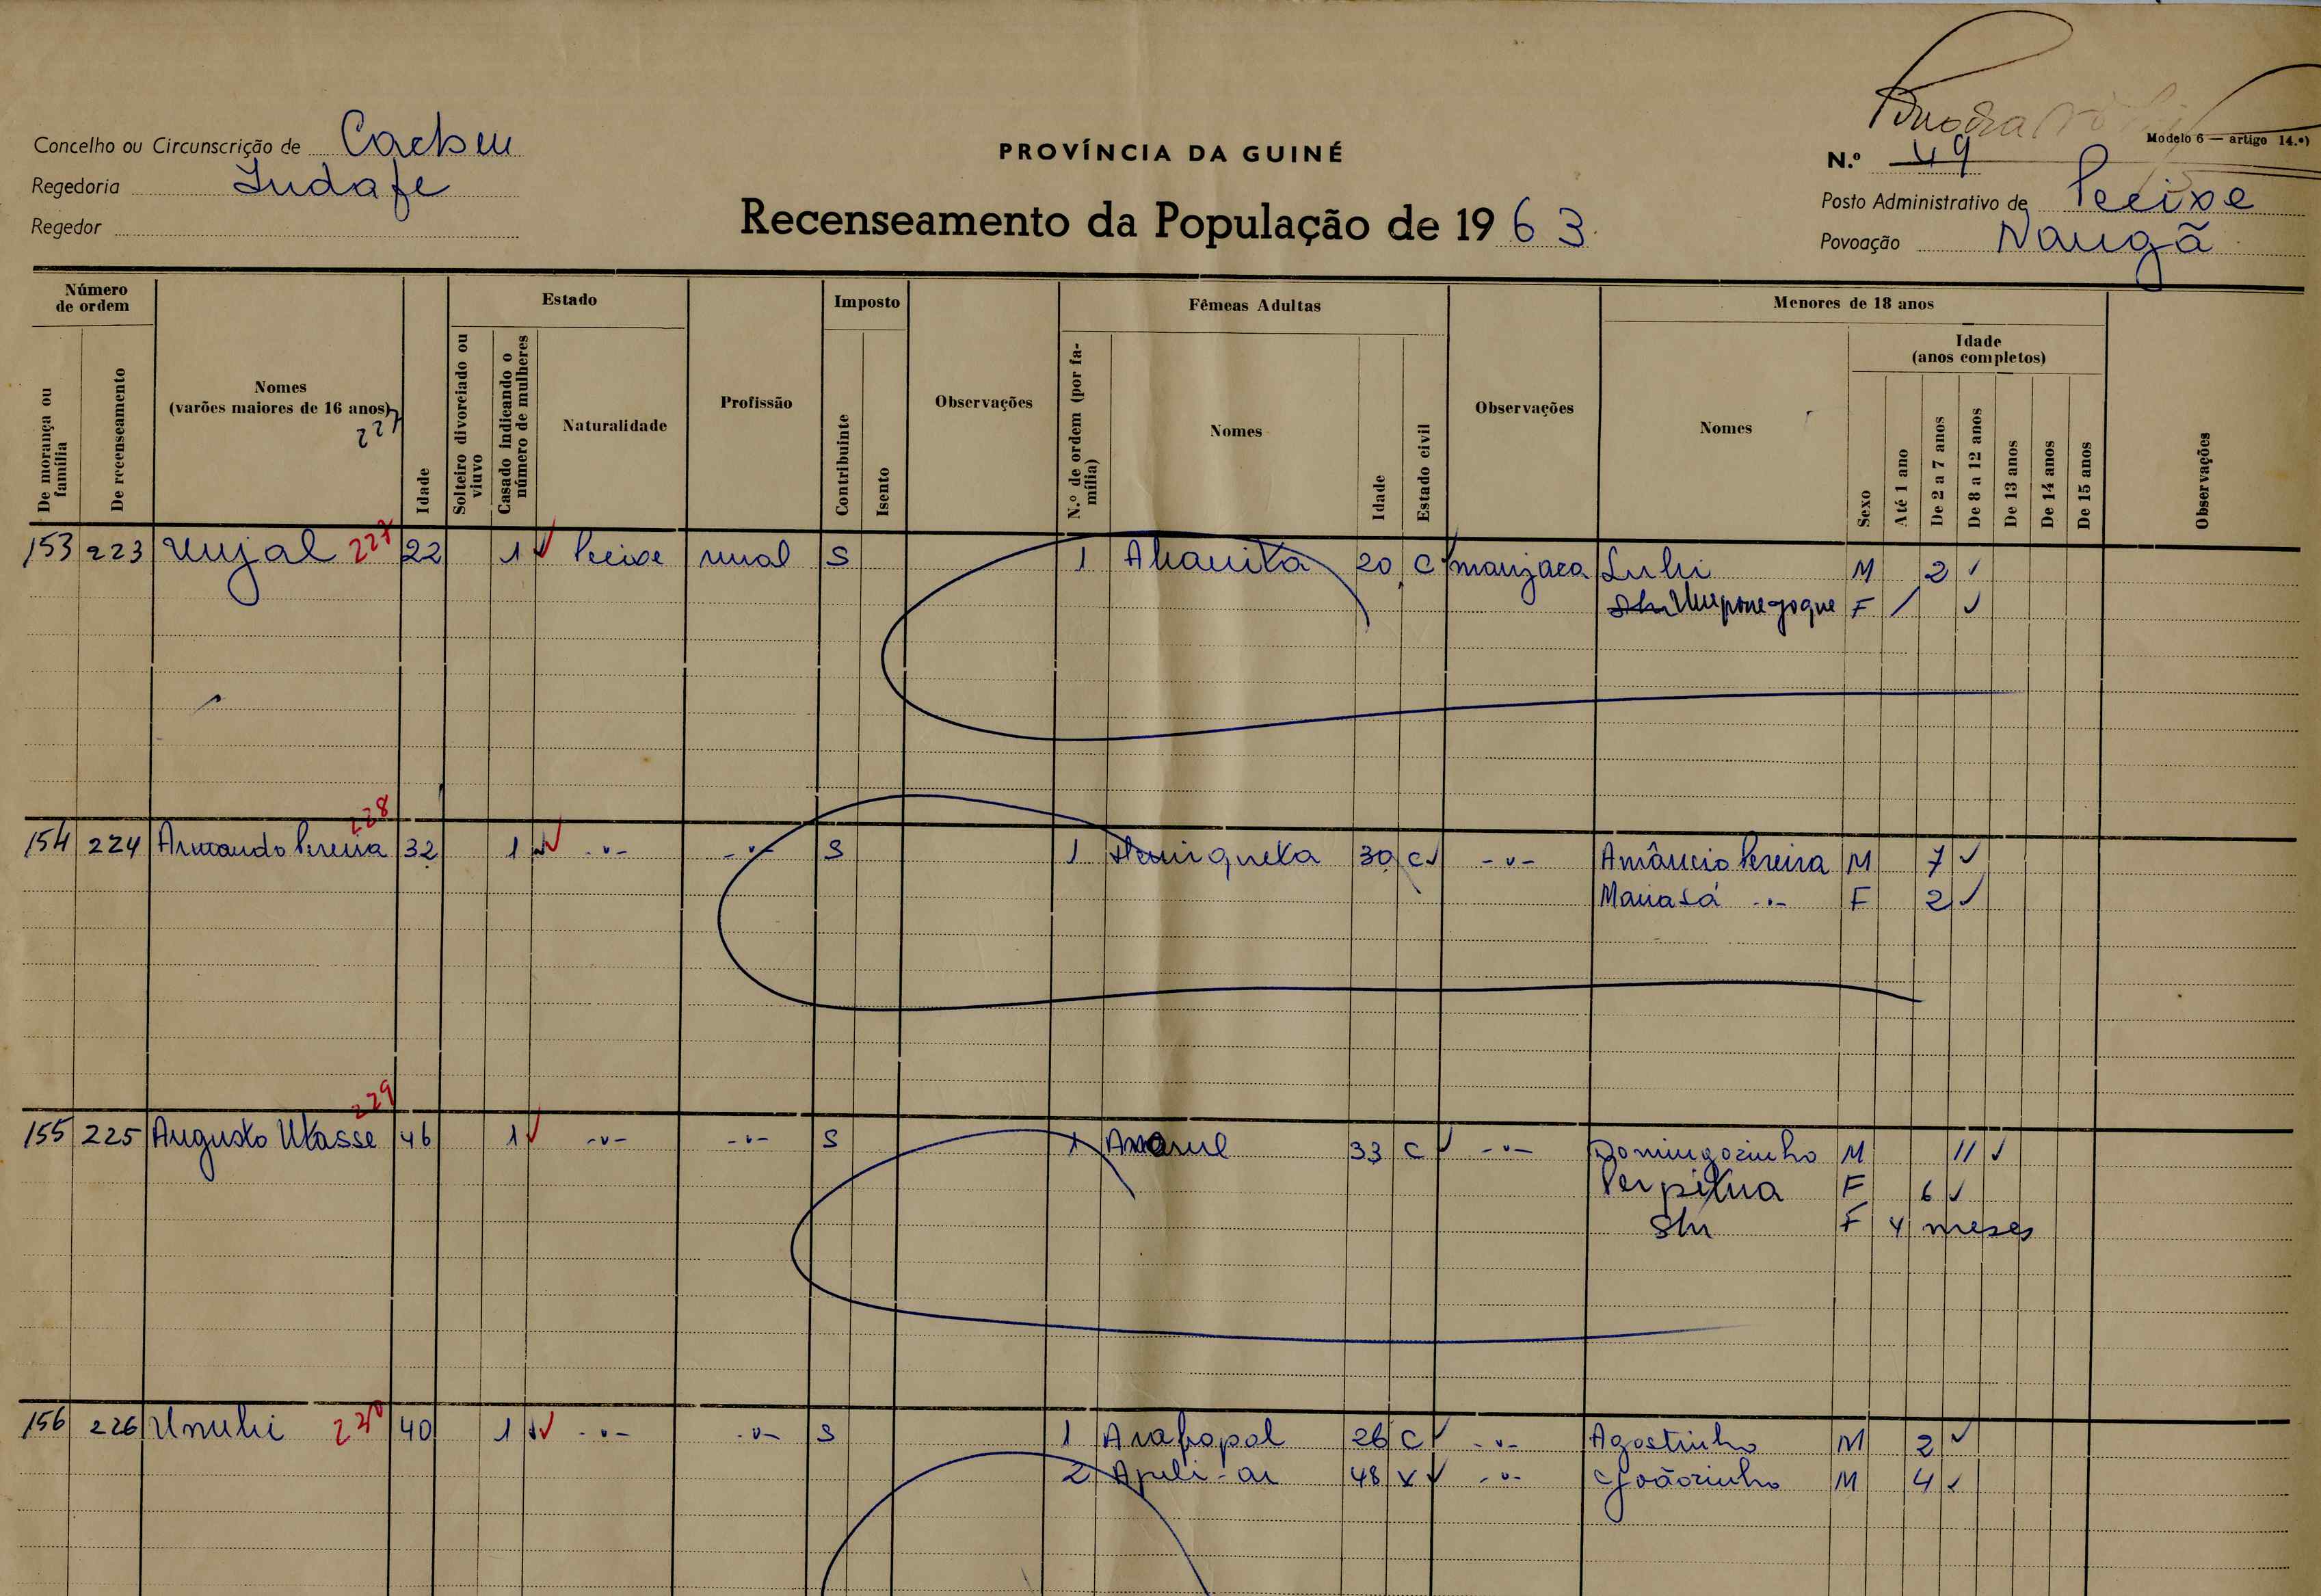 Concelho ou Circunscrição de Cacheu
Regedoria Indafe
Regedor
PROVÍNCIA DA GUINÉ
Recenseamento da População de 1963
Modelo 6 — artigo 14.º)
N.º 49
Posto Administrativo de Pecixe
Povoação Nangã
Número de ordem
De morança ou família
De recenseamento
Nomes
(varões maiores de 16 anos)
227
Idade
Estado
Solteiro divorciado ou viuvo
Casado indicando o número de mulheres
Naturalidade
Profissão
Imposto
Contribuinte
Isento
Observações
Fêmeas Adultas
N.º de ordem (por família)
Nomes
Idade
Estado civil
Observações
Menores de 18 anos
Nomes
Sexo
Idade
(anos completos)
Até 1 ano
De 2 a 7 anos
De 8 a 12 anos
De 13 anos
De 14 anos
De 15 anos
Observações
153 223 Unjal 227 22 1 Pecixe rural S 1 20 C manjaca Luhi M 2
F
154 224 Armando Pereira 228 32 1 -"- -"- S 1 Henriqueta 30 C -"- Amâncio Pereira M 7
Maria Sá -"- F 2
155 225 Augusto Utasse 229 46 1 -"- -"- S 1 33 C -"- Domingozinho M 11
Perpitua F 6
F 4 meses
156 226 Unuhi 230 40 1 -"- -"- S 1 Arafopol 26 C -"- Agostinho M 2
2 48 -"- Joãozinho M 4